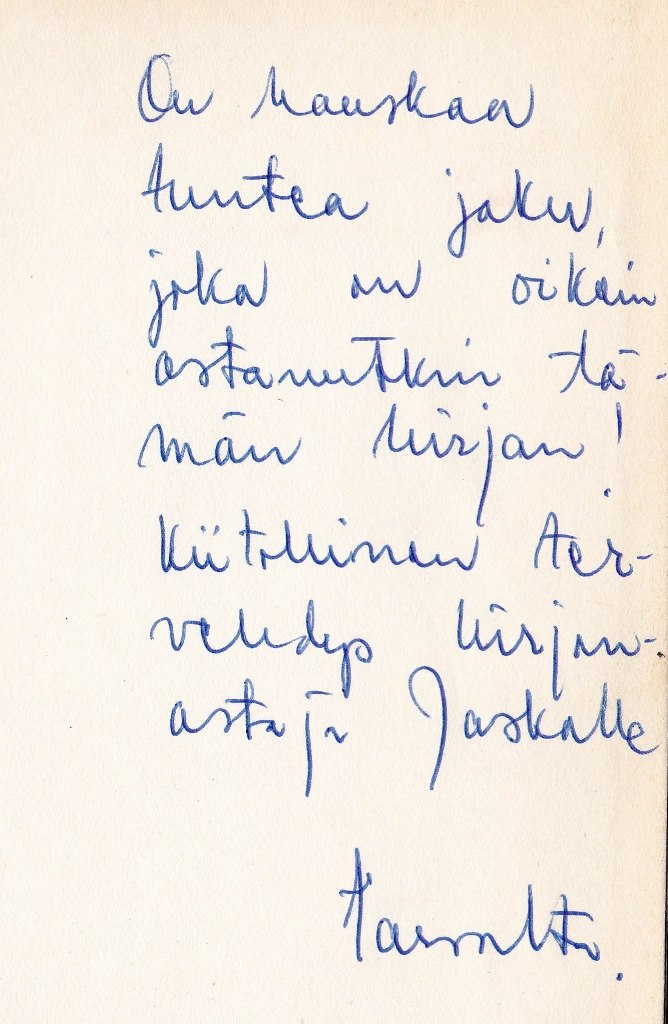 On hauskaa
tuntea joku,
joka on oikein
ostanutkin tä-
män kirjan!
Kiitollinen ter-
vehdys kirjan-
ostaja Jaskalle